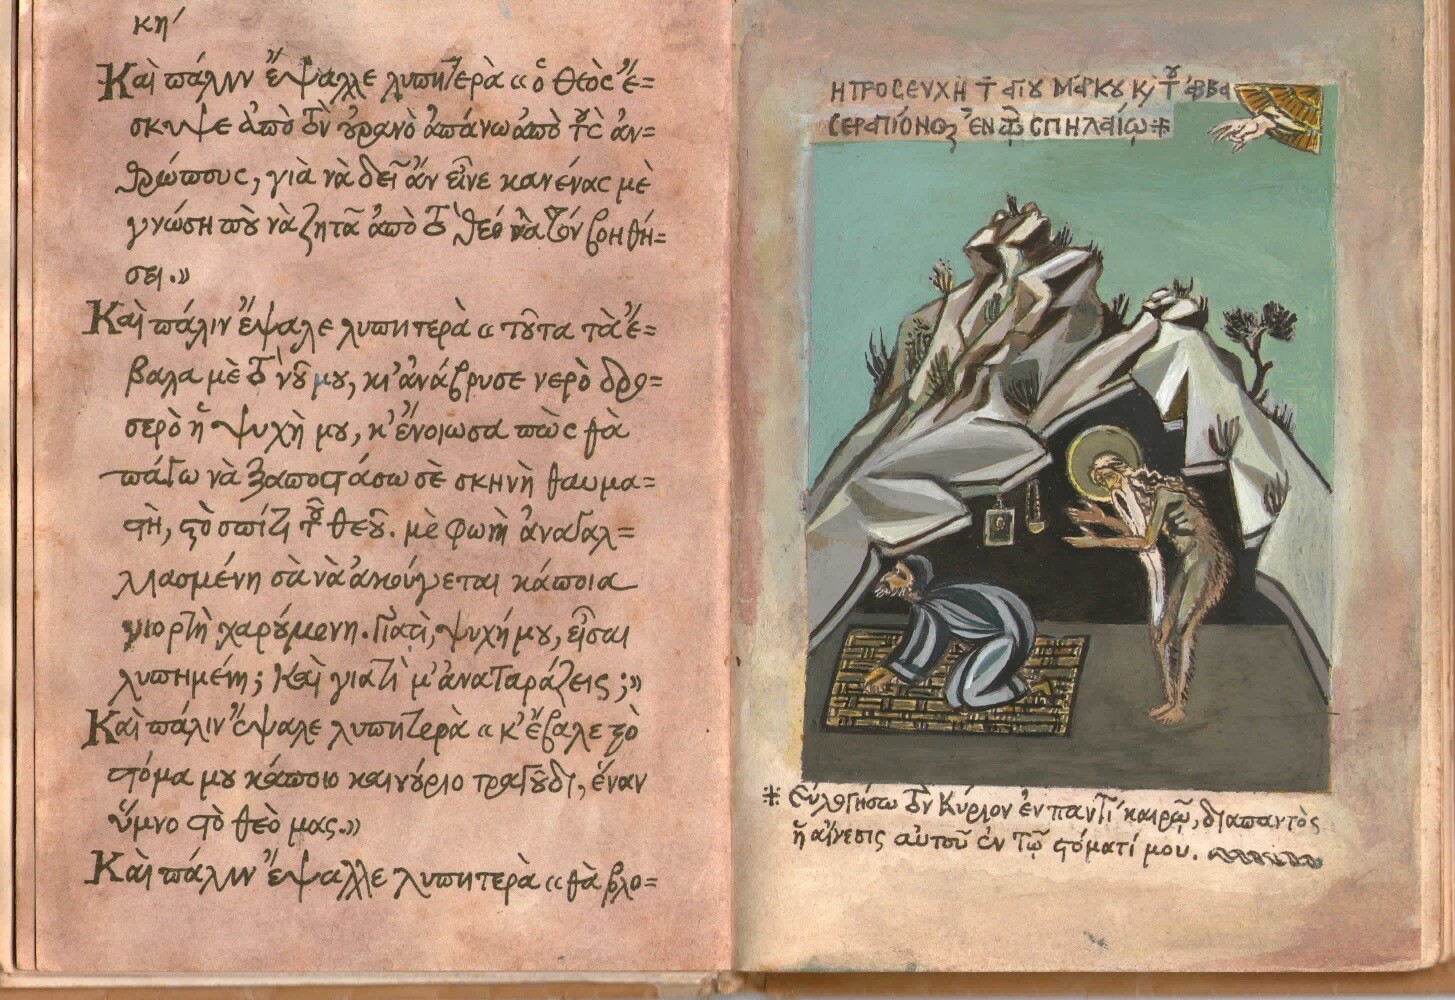 κη΄
Καὶ πάλιν ἔψαλλε λυπητερὰ «ὁ θεὸς ἔ=
σκυψε ἀπὸ τὸν οὐρανὸ ἀπάνω ἀπὸ τοὺς ἀν=
θρώπους, γιὰ νὰ δεῖ ἂν εἶνε κανένας μὲ
γνώση ποὺ νὰ ζητᾶ ἀπὸ τὸ θεό νὰ τόν βοηθή=
σει.»
Καὶ πάλιν ἔψαλε λυπητερὰ «τοῦτα τὰ ἔ=
βαλα μὲ τὸ νοῦ μου, κι' ἀνάβρυσε νερὸ δρο=
σερὸ ἡ ψυχὴ μου, κ' ἔνοιωσα πὼς θὰ
πάγω νὰ ξαποστάσω σὲ σκηνὴ θαυμα=
στὴ, στὸ σπίτι τοῦ θεοῦ. μὲ φωνὴ ἀναγαλ=
λιασμένη σὰ νὰ ἀκούγεται κάποια
γιορτὴ χαρούμενη. Γιατὶ, ψυχή μου, εἶσαι
λυπημένη; Καὶ γιατὶ μ' ἀναταράζεις;»
Καὶ πάλιν ἔψαλε λυπητερὰ «κ' ἔβαλε στὸ
στόμα μου κάποιο καινούριο τραγοῦδι, ἕναν
ὕμνο στὸ θεὸ μας.»
Καὶ πάλιν ἔψαλλε λυπητερὰ «θὰ βλο=
Η ΠΡΟΣΕΥΧΗ τοῦ ἁγίου ΜΑΡΚΟΥ Κὶ τοῦ ἀββᾶ
ΣΕΡΑΠΙΟΝΟς ἘΝ τῷ ΣΠΗΛΑΊῼ*
* Εὐλογήσω τὸν Κύριον ἐν παντὶ καιρῷ, διαπαντὸς
ἡ αἴνεσις αὐτοῦ ἐν τῷ στόματί μου.